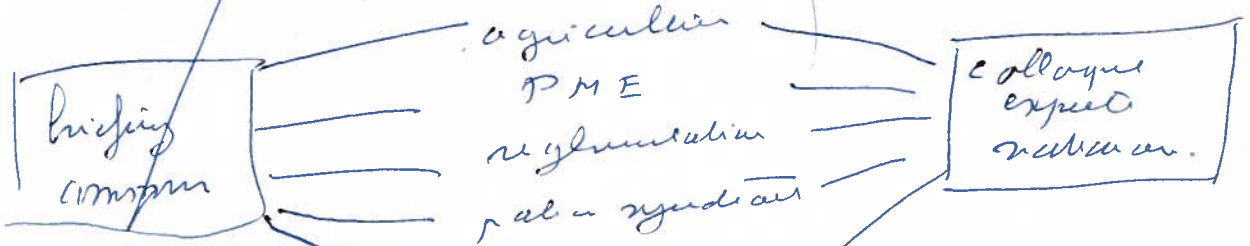 briefing
commun
agriculture
PME
réglementation
syndicats
colloque
experts
nationaux.